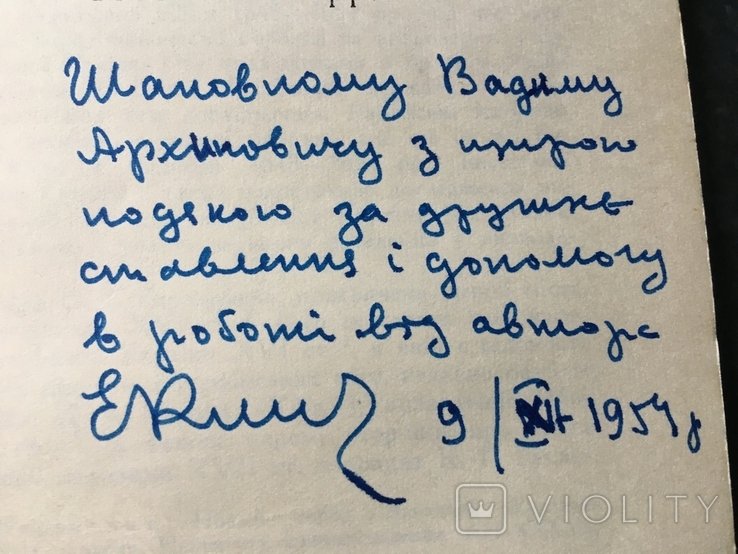 Шановному Вадиму
Архиповичу з щирою
подякою за дружнє
ставлення і допомогу
в роботі від автора
9/XII 1954 р
VIOLITY